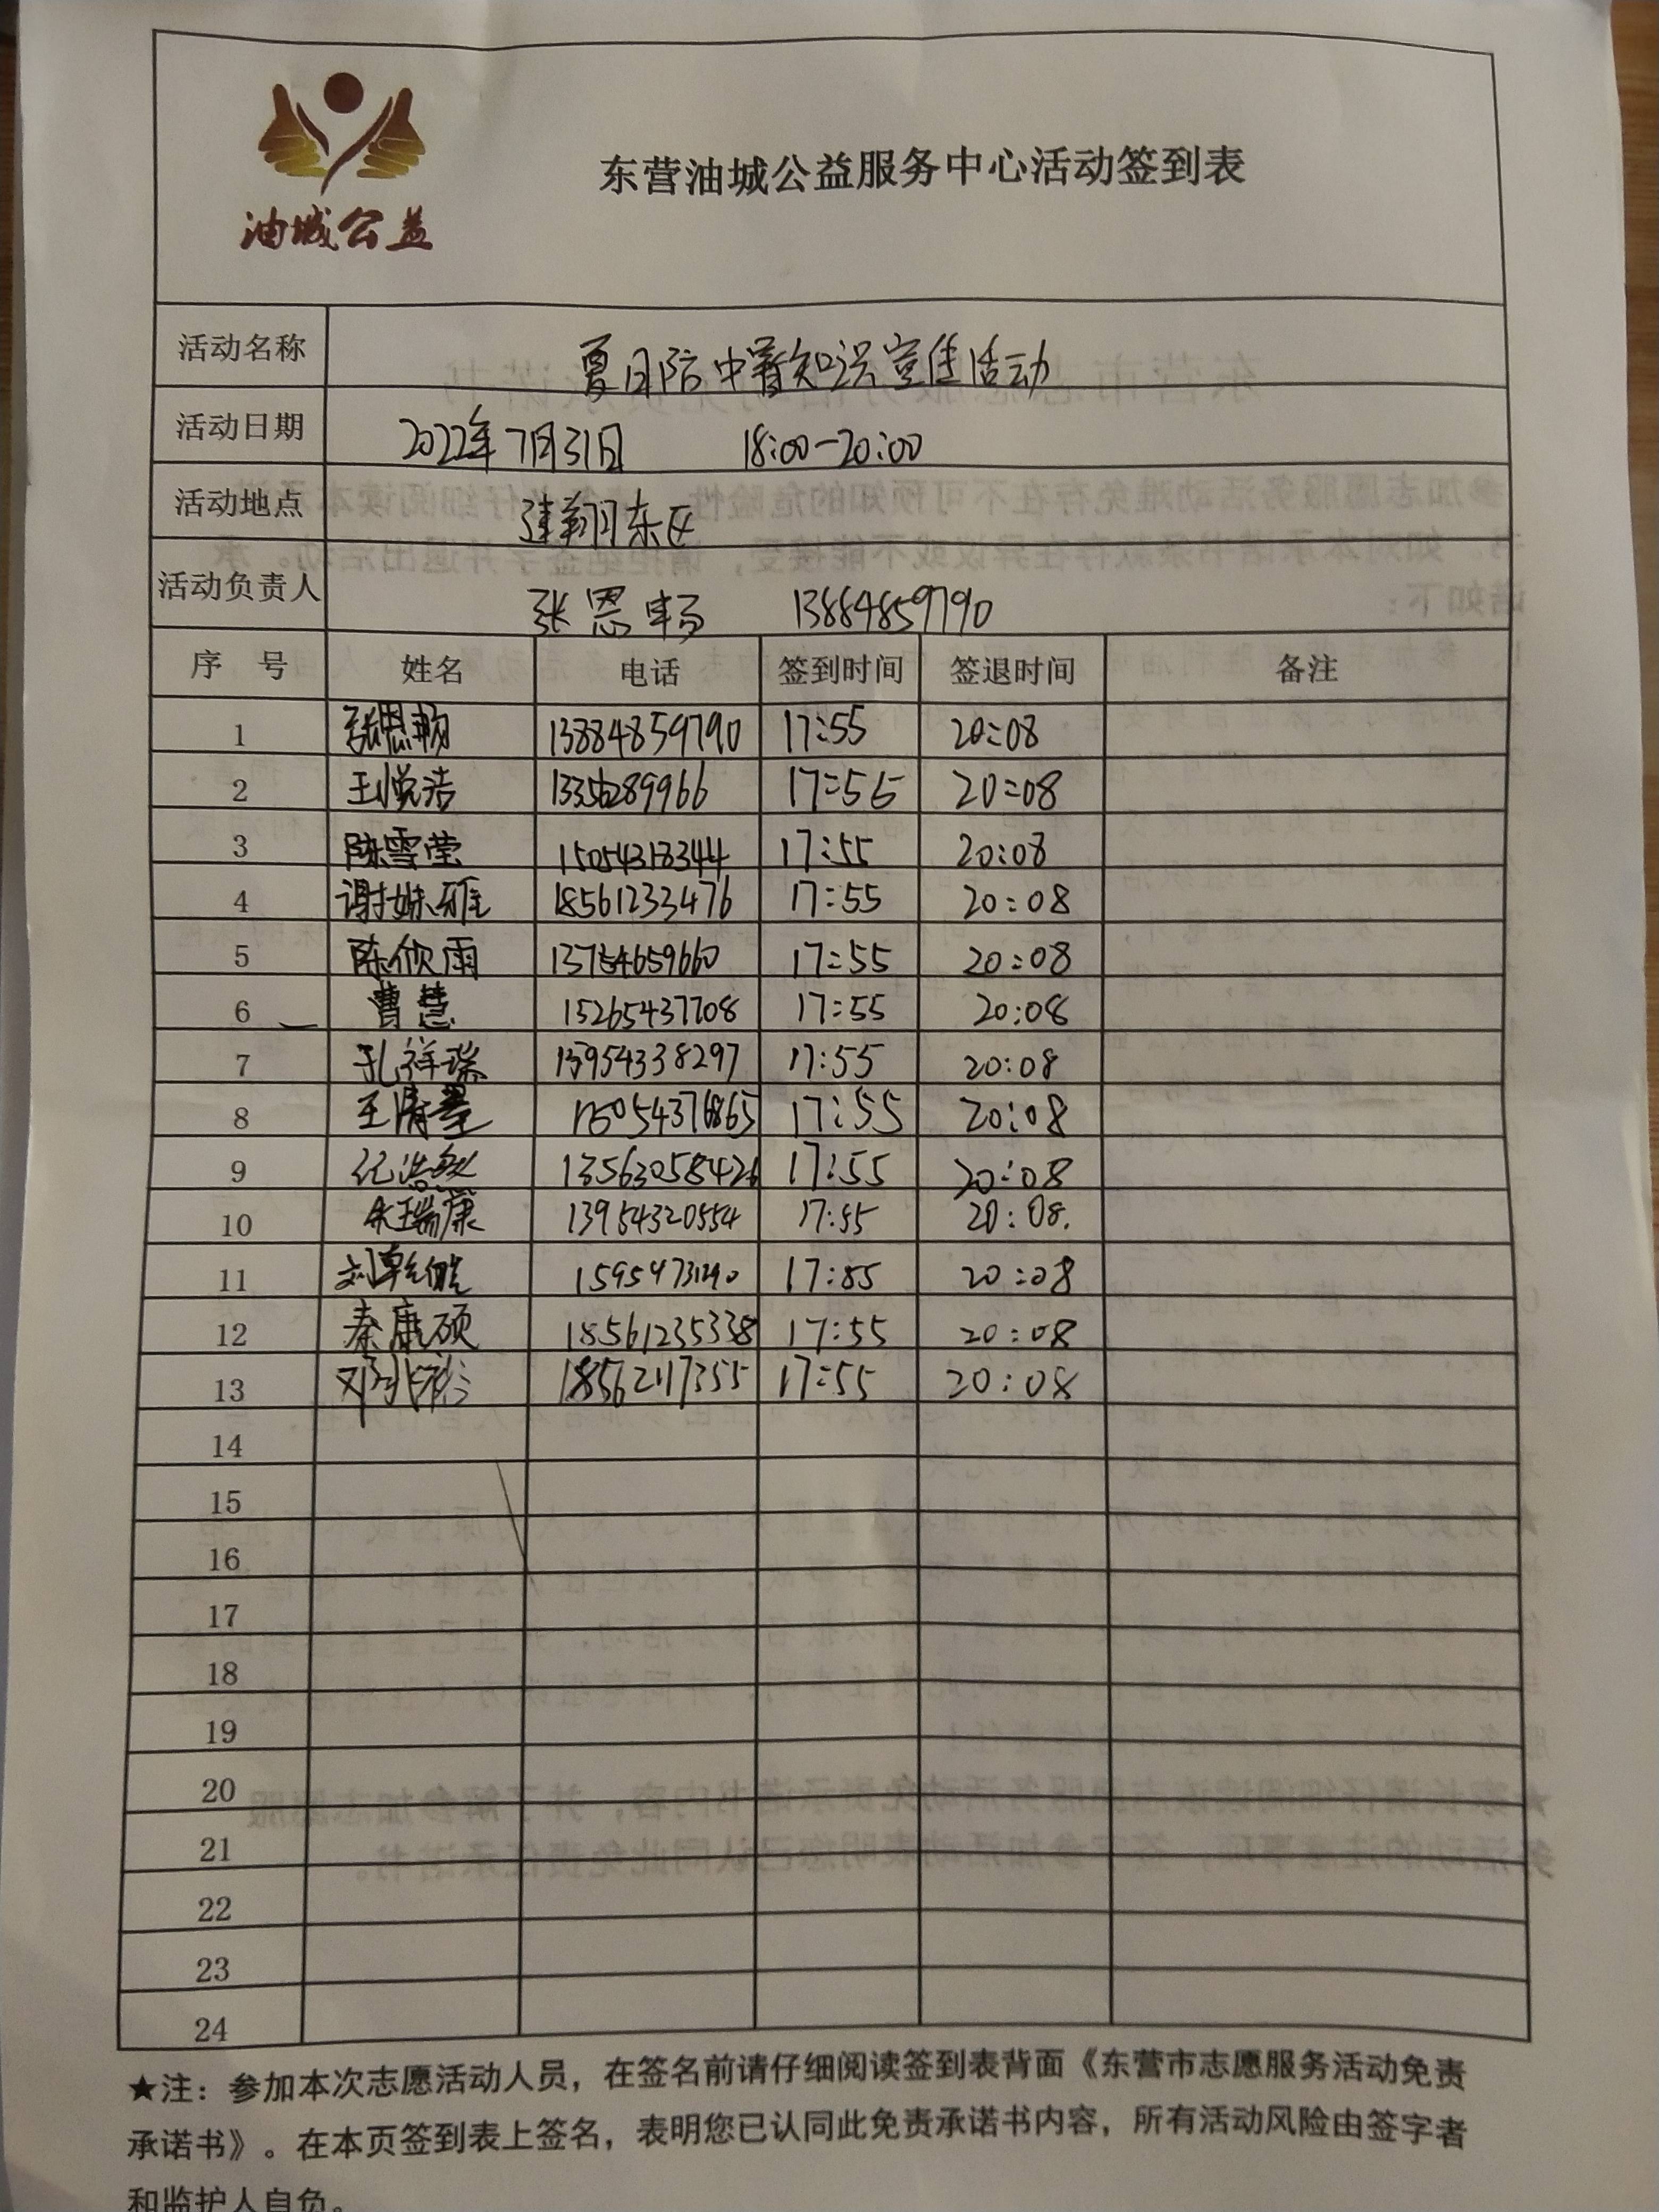 油城公益
东营油城公益服务中心活动签到表
活动名称 夏日防中暑知识宣传活动
活动日期 2022年7月31日 18:00-20:00
活动地点 建翔东区
活动负责人 张恩畅 13884859790
序 号 姓名 电话 签到时间 签退时间 备注
1 张恩畅 13884859790 17:55 20:08
2 王悦浩 17:55 20:08
3 陈雪莹 15054318344 17:55 20:08
4 谢姝雅 18561233476 17:55 20:08
5 陈欣雨 17:55 20:08
6 曹慧 15265437708 17:55 20:08
7 孔祥瑞 13954338297 17:55 20:08
8 17:55 20:08
9 17:55 20:08
10 朱瑞康 13954320554 17:55 20:08.
11 17:55 20:08
12 秦康硕 18561235338 17:55 20:08
13 18562117355 17:55 20:08
14
15
16
17
18
19
20
21
22
23
24
★注：参加本次志愿活动人员，在签名前请仔细阅读签到表背面《东营市志愿服务活动免责
承诺书》。在本页签到表上签名，表明您已认同此免责承诺书内容，所有活动风险由签字者
和监护人自负。